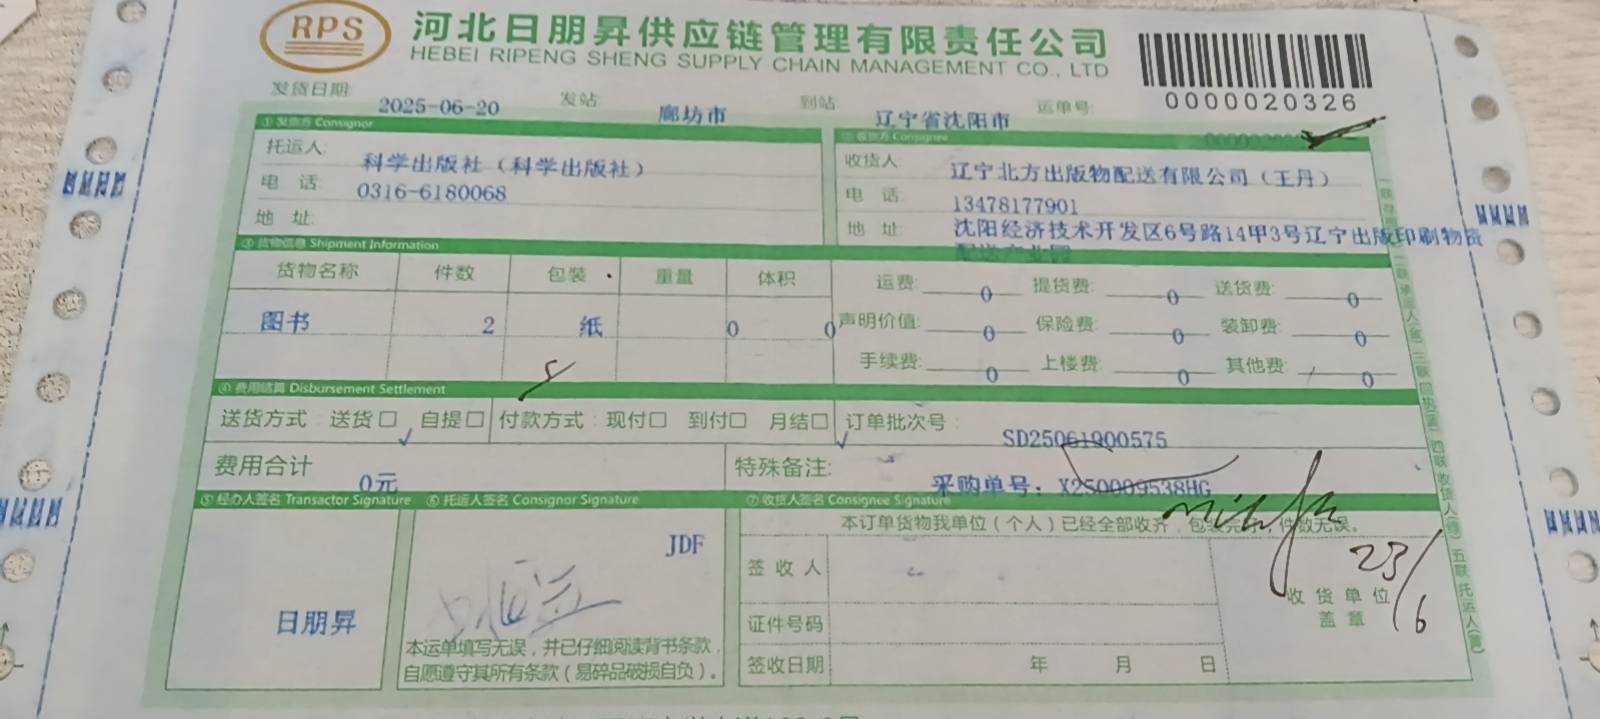 RPS 河北日朋昇供应链管理有限责任公司
HEBEI RIPENG SHENG SUPPLY CHAIN MANAGEMENT CO., LTD
0000020326
发货日期: 2025-06-20 发站: 廊坊市 到站: 辽宁省沈阳市 运单号:
①发货方 Consignor
②收货方 Consignee
托运人 科学出版社（科学出版社） 收货人 辽宁北方出版物配送有限公司（王丹）
电 话 0316-6180068 电 话 13478177901
地 址 地 址 沈阳经济技术开发区6号路14甲3号辽宁出版印刷物资
配送产业园
③货物信息 Shipment Information
货物名称 件数 包装 重量 体积 运费: 0 提货费: 0 送货费: 0
图书 2 纸 0 0 声明价值: 0 保险费: 0 装卸费: 0
手续费: 0 上楼费: 0 其他费: 0
④费用结算 Disbursement Settlement
送货方式: 送货□ 自提□ 付款方式: 现付□ 到付□ 月结□ 订单批次号: SD25061900575
费用合计 0元 特殊备注: 采购单号: X250009538HG
⑤经办人签名 Transactor Signature ⑥托运人签名 Consignor Signature ⑦收货人签名 Consignee Signature
本订单货物我单位（个人）已经全部收齐，包装完好，件数无误。
JDF
签收人
23/6
收货单位
盖章
日朋昇
证件号码
本运单填写无误，并已仔细阅读背书条款，
自愿遵守其所有条款（易碎品破损自负）。
签收日期 年 月 日